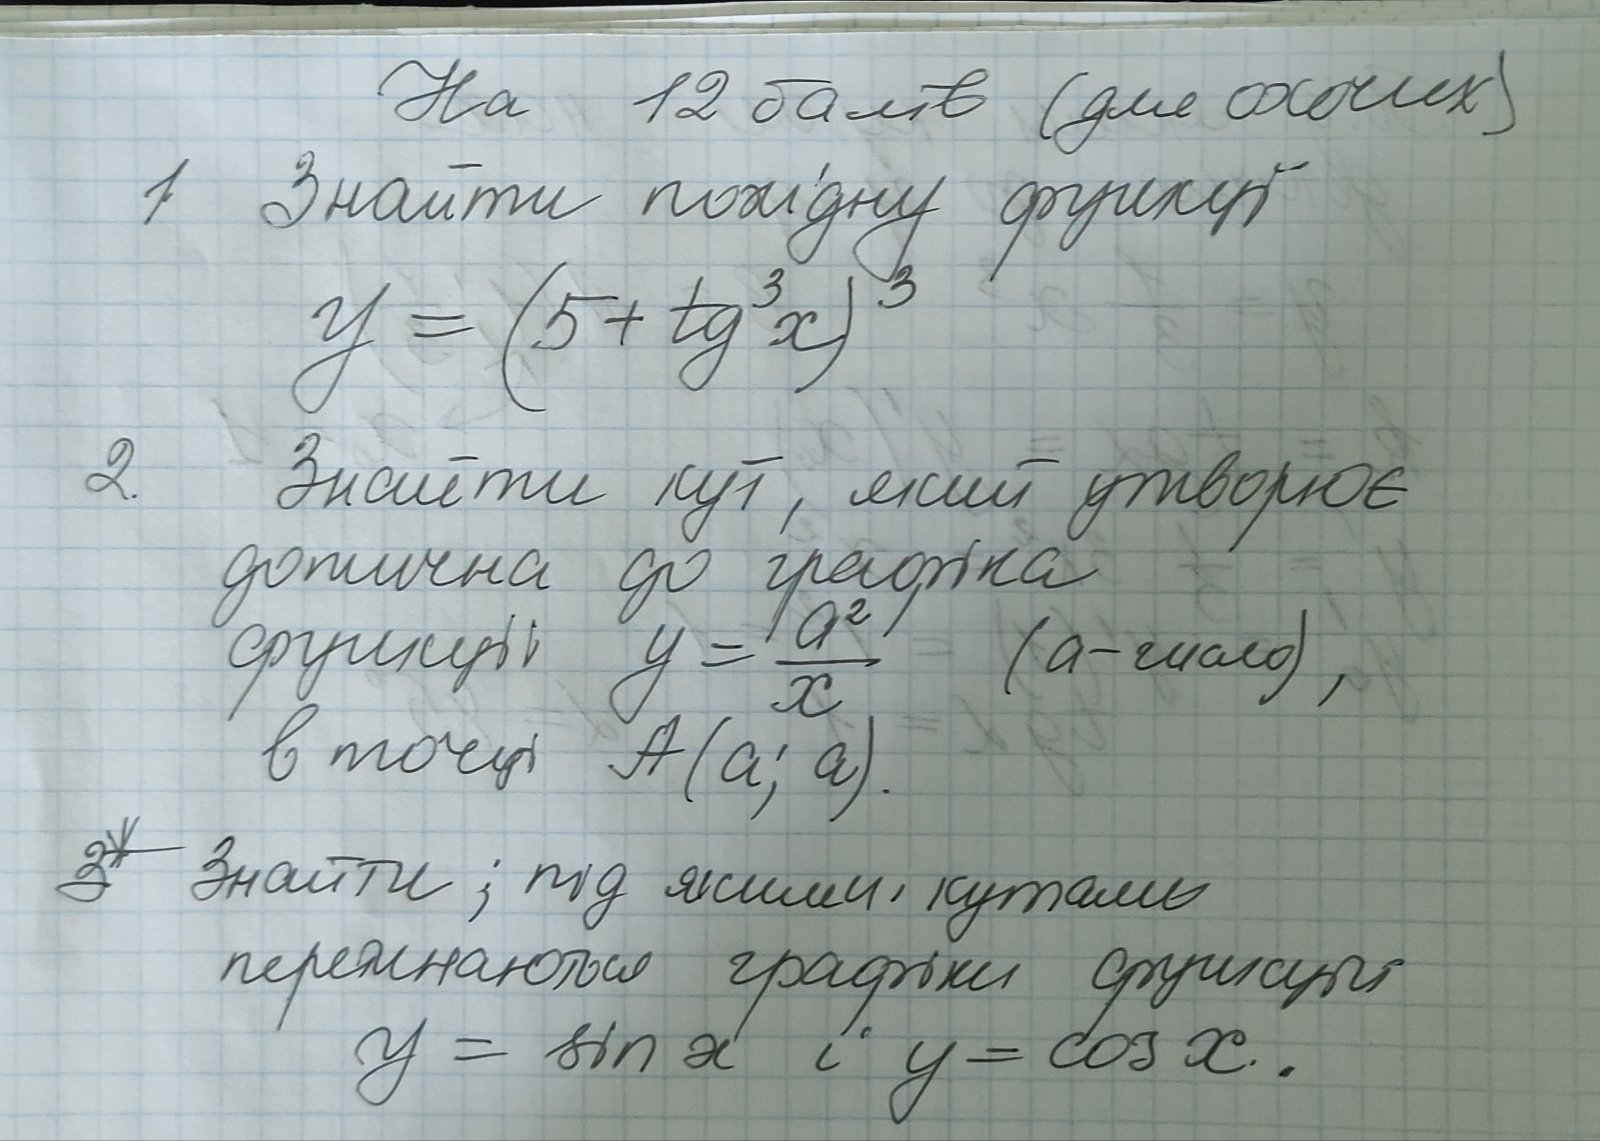 На 12 балів (для охочих)
1 Знайти похідну функції
y = (5 + tg³x)³
2. Знайти кут, який утворює
дотична до графіка
функції y = a²/x (a – число),
в точці A(a; a).
3* Знайти, під якими кутами
перетинаються графіки функцій
y = sin x і y = cos x.